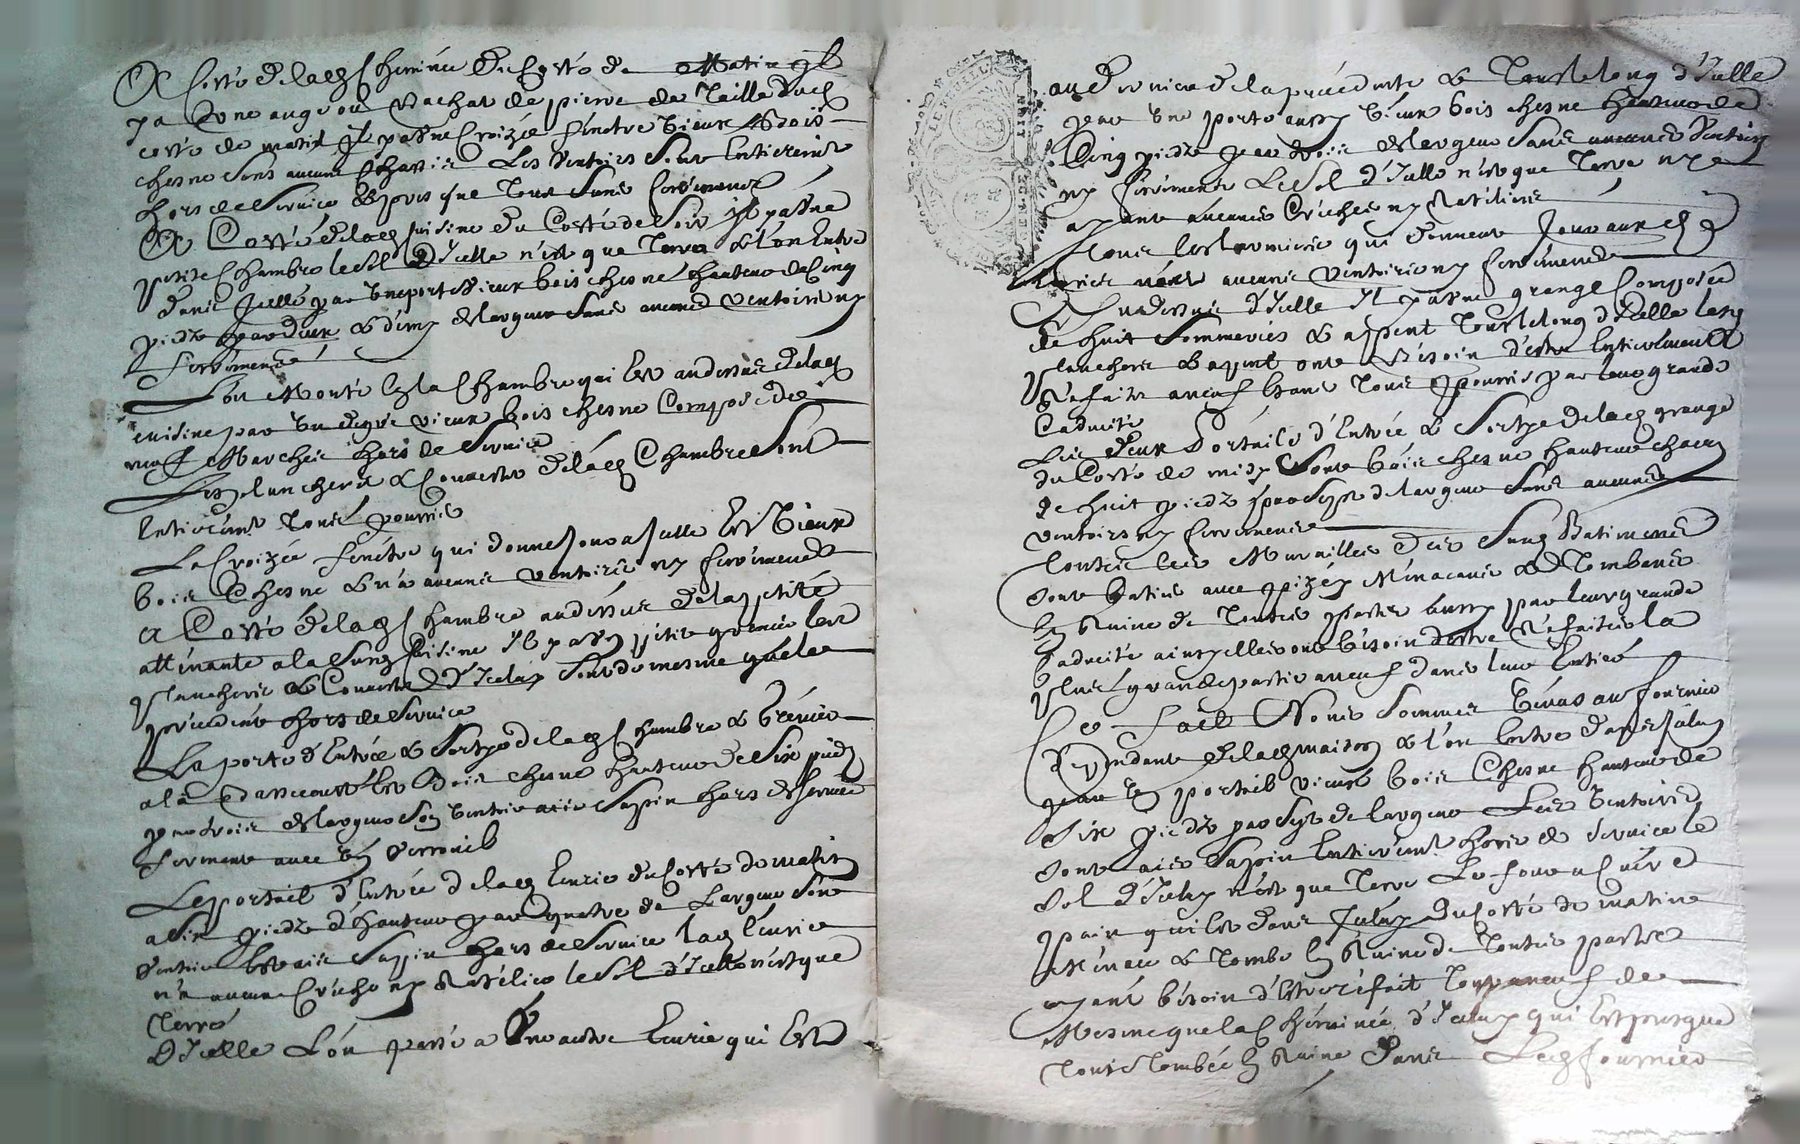 A Costé de lad Cheminée du Costé de Matin il
y a Une auge ou Vachat de pierre de Taille dud
costé de matin Il y a Une Croizée fenétre Vieux Bois
chesne sans aucuns Chassis Les Ventoirs sont Entierement
hors de Service Et presque Tous sans ferrements
A Costé de lad Cuisine du Costé de Soir Il y a Une
petite Chambre le sol d'Icelle n'est que Terre & l'on Entre
dans Icelle par Une porte Vieux bois chesne hauteur de Cinq
piedz par deux & demy de largeur sans aucuns Ventoirs ny
ferrements
L'on Monte En la Chambre qui Est au dessus de lad
cuisine par Un degré vieux bois chesne Composé de
neuf Marches hors de Service
Les planchers & Couverts de lad Chambre Sont
Entierement Tous pourris
La Croizée fenétre qui donne Jour a Icelle Est Vieux
bois Chesne & n'a aucuns Ventoirs ny ferrements
A Costé de lad Chambre au dessus de la petite
attinante a la Susd Cuisine Il y a Un petit grenier les
planchers & Couverts d'Iceluy sont de mesme que le
precedent hors de Service
La porte d'Entrée & Sortye de lad Chambre & Grenier
a la Est Bois chesne hauteur de Six piedz
par trois de largeur Son Ventoir ais Sappin hors de Service
fermant avec Un Verrouil
Le portail d'Entrée de lad Ecurie du Costé de matin
a Six piedz d'hauteur par quatre de Largeur Son
Ventoir Est ais Sappin hors de Service lad Ecurie
n'a aucune Creche ny Ratélier le Sol d'Icelle n'est que
Terre
d'Icelle L'on passe a Une autre Ecurie qui Est
au Derniere de la precedente & Tout le long d'Icelle
par Une porte aussy Vieux bois chesne hauteur de
Cinq piedz par trois de largeur sans aucuns Ventoirs
ny ferrements Le Sol d'Icelle n'est que Terre n'y
ayant aucunes Creches ny Ratéliers
Tous les larmiers qui donnent Jour aux d
Ecuries n'ont aucuns Ventoirs ny ferrements
Au dessus d'Icelle Il y a Une grange Composée
de huit Sommeries & appent Tout le long d'Icelle les
planchers & apent ont Besoin d'estre Entierement
Refaits a neuf Estans Tous pourris par leur grande
Caducité
Les deux Portails d'Entrée & Sortye de lad grange
du Costé de midy Sont bois chesne hauteur chacun
de huit piedz par Sept de largeur Sans aucuns
ventoirs ny ferrements
Toutes les Murailles des Susd Batiments
Sont Baties avec pizéz Ménacants & Tombants
En Ruine de Toutes Parties aussy par leur grande
Caducité ainsy elles ont besoin d'estre Refaites la
plus grande partie a neuf dans leur Entier
Ce fait Nous Sommes Venus au fournier
dépendant de lad maison & l'on Entre dans Iceluy
par Un portail vieux bois Chesne hauteur de
Six piedz par Sept de largeur Les Ventoirs
Sont ais Sapin Entierement hors de Service le
Sol d'Iceluy n'est que Terre Le four a Cuire
pain qui Est dans Iceluy du Costé de matin
Menace & Tombe En Ruine de Toutes parts
ayant bésoin d'Estre réfait Tout a neuf de
Mesme que la Cheminée d'Iceluy qui Est presque
Toute Tombée En Ruine Dans Led fournier